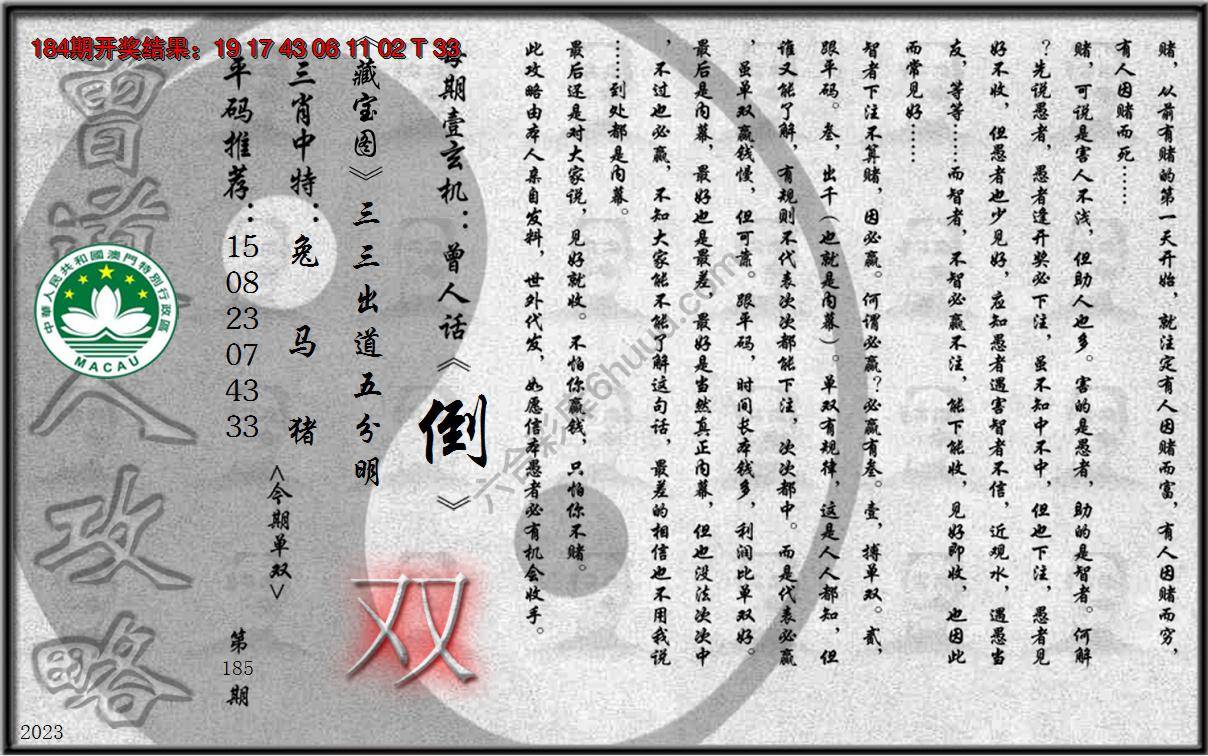 184期开奖结果：19 17 43 06 11 02 T 33
赌，从前有赌的第一天开始，就注定有人因赌而富，有人因赌而穷，
有人因赌而死……
赌，可说是害人不浅，但助人也多。害的是愚者，助的是智者。何解
？先说愚者，愚者逢开奖必下注，虽不知中不中，但也下注，愚者见
好不收，但愚者也少见好，应知愚者遇害智者不信，近观水，遇愚当
友，等等……而智者，不智必赢不注，能下能收，见好即收，也因此
而常见好……
智者下注不算赌，因必赢。何谓必赢？必赢有叁。壹，搏单双。贰，
跟平码。叁，出千（也就是内幕）。单双有规律，这是人人都知，但
谁又能了解，有规则不代表次次都能下注，次次都中。而是代表必赢
，虽单双赢钱慢，但可靠。跟平码，时间长本钱多，利润比单双好。
最后是内幕，最好也是最差，最好是当然真正内幕，但也没法次次中
，不过也必赢，不知大家能不能了解这句话，最差的相信也不用我说
……到处都是内幕。
最后还是对大家说，见好就收。不怕你赢钱，只怕你不赌。
此攻略由本人亲自发料，世外代发，如愿信本愚者必有机会收手。
每期壹玄机：曾人话《倒》
《藏宝图》三三出道五分明
双
三肖中特：兔 马 猪
<今期单双>
平码推荐：
15
08
23
07
43
33
第
185
期
曾道人攻略
中華人民共和國澳門特別行政區
MACAU
六合彩库6huuu.com
2023